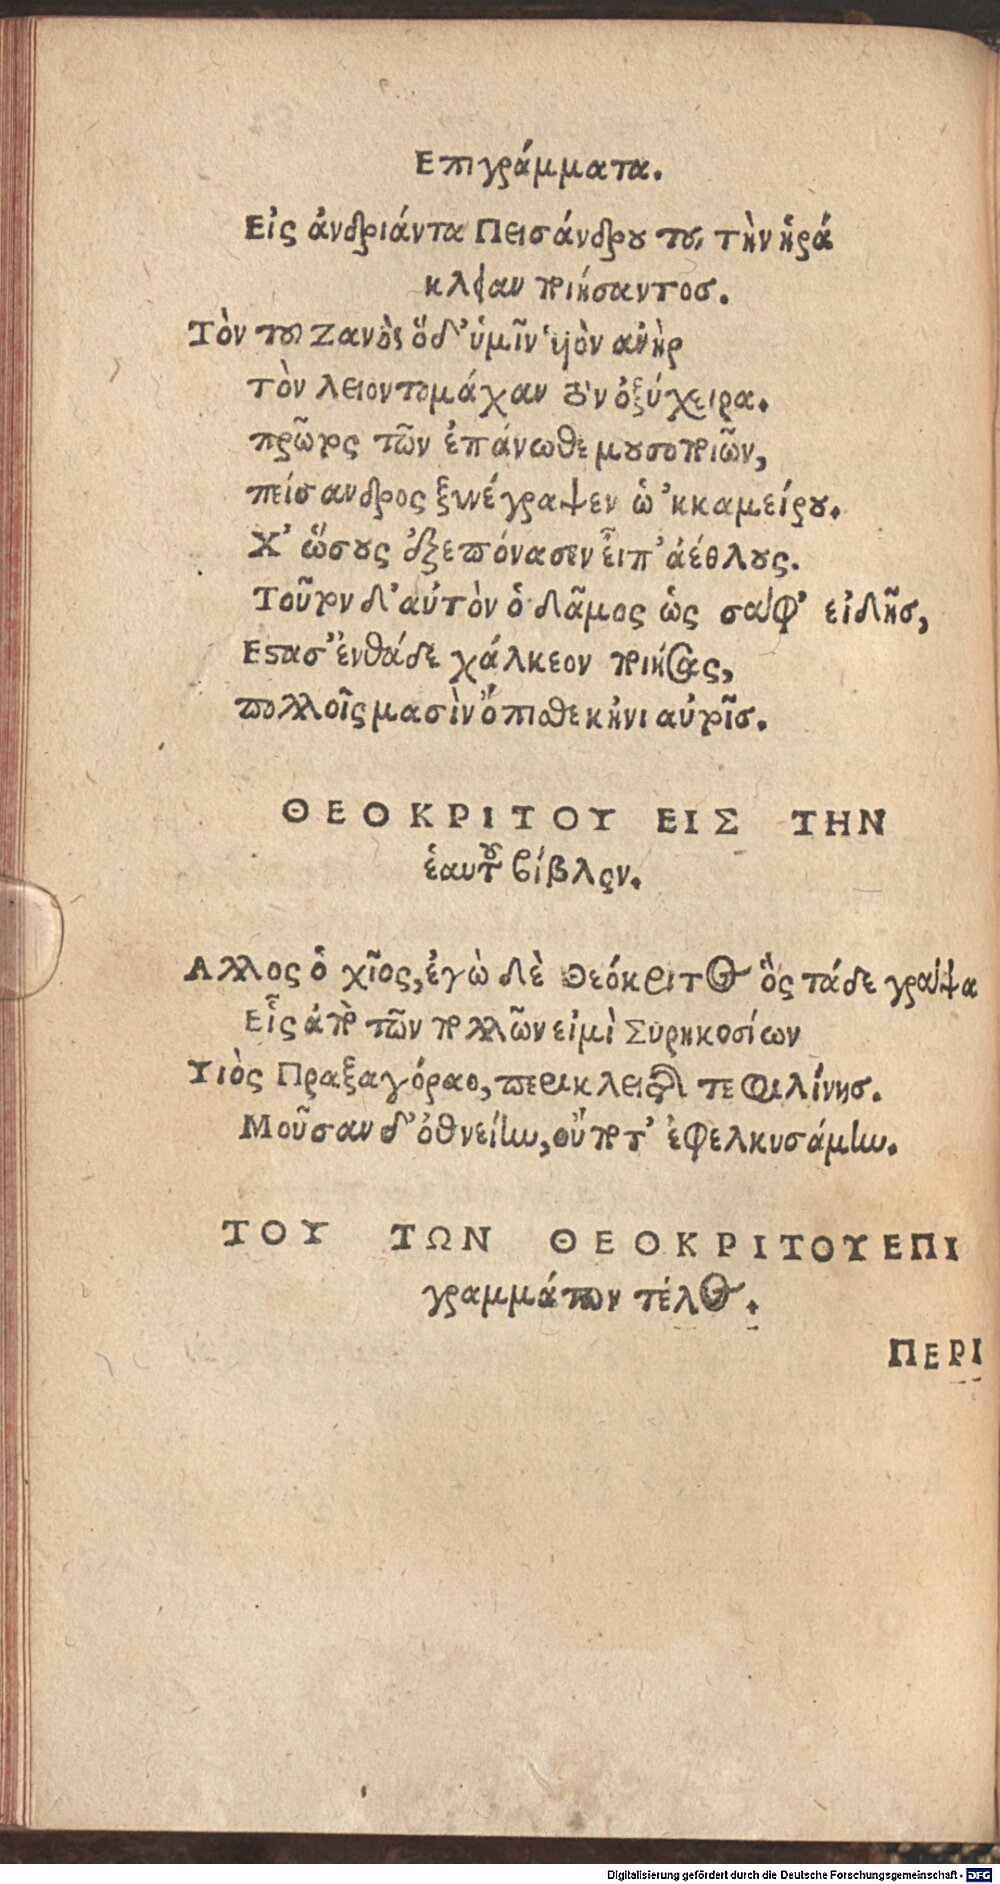 Επιγράμματα.
Εἰς ἀνδριάντα Πεισάνδρου τοῦ τὴν ἡρά
κλειαν ποιήσαντος.
Τὸν τοῦ Ζανὸς ὅδ' ὑμῖν υἱὸν ἀνὴρ
τὸν λειοντομάχαν τὸν ὀξύχειρα.
πρῶτος τῶν ἐπάνωθε μουσοποιῶν,
πείσανδρος ξυνέγραψεν ὡ 'κκαμείρου.
Χ' ὥσους ἐξεπόνασεν εἶπ' ἀέθλους.
Τοῦτον δ' αὐτὸν ὁ δᾶμος ὡς σάφ' εἰδῇς,
Εστασ' ἐνθάδε χάλκεον ποιήσας,
πολλοῖς μασὶν ὄπισθε κἠνιαυτοῖς.
ΘΕΟΚΡΙΤΟΥ ΕΙΣ ΤΗΝ
ἑαυτοῦ βίβλον.
Αλλος ὁ χῖος, ἐγὼ δὲ Θεόκριτος ὃς τάδε γράψα
Εἷς ἀπὸ τῶν πολλῶν εἰμὶ Συρηκοσίων
Υἱὸς Πραξαγόραο, περικλειτῆς τε φιλίνης.
Μοῦσαν δ' ὀθνείην, οὔποτ' ἐφελκυσάμην.
ΤΟΥ ΤΩΝ ΘΕΟΚΡΙΤΟΥ ΕΠΙ
γραμμάτων τέλος.
ΠΕΡΙ
Digitalisierung gefördert durch die Deutsche Forschungsgemeinschaft - DFG